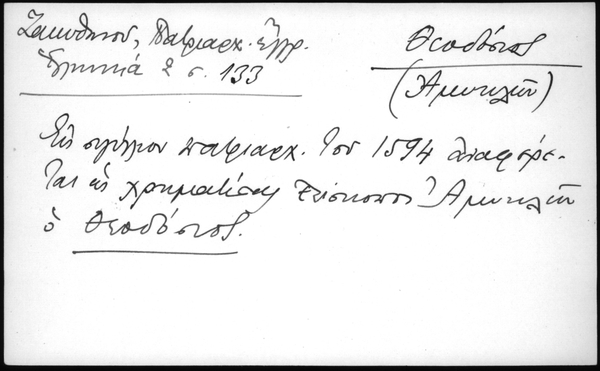 Ζακυθηνού, Πατριαρχ. έγγρ.
Ἑλληνικά 2 σ. 133
Θεοδόσιος
(Ἀμυκλῶν)
Εἰς σιγίλλιον πατριαρχ. τοῦ 1594 ἀναφέρε-
ται ὡς χρηματίσας ἐπίσκοπος Ἀμυκλῶν
ὁ Θεοδόσιος.